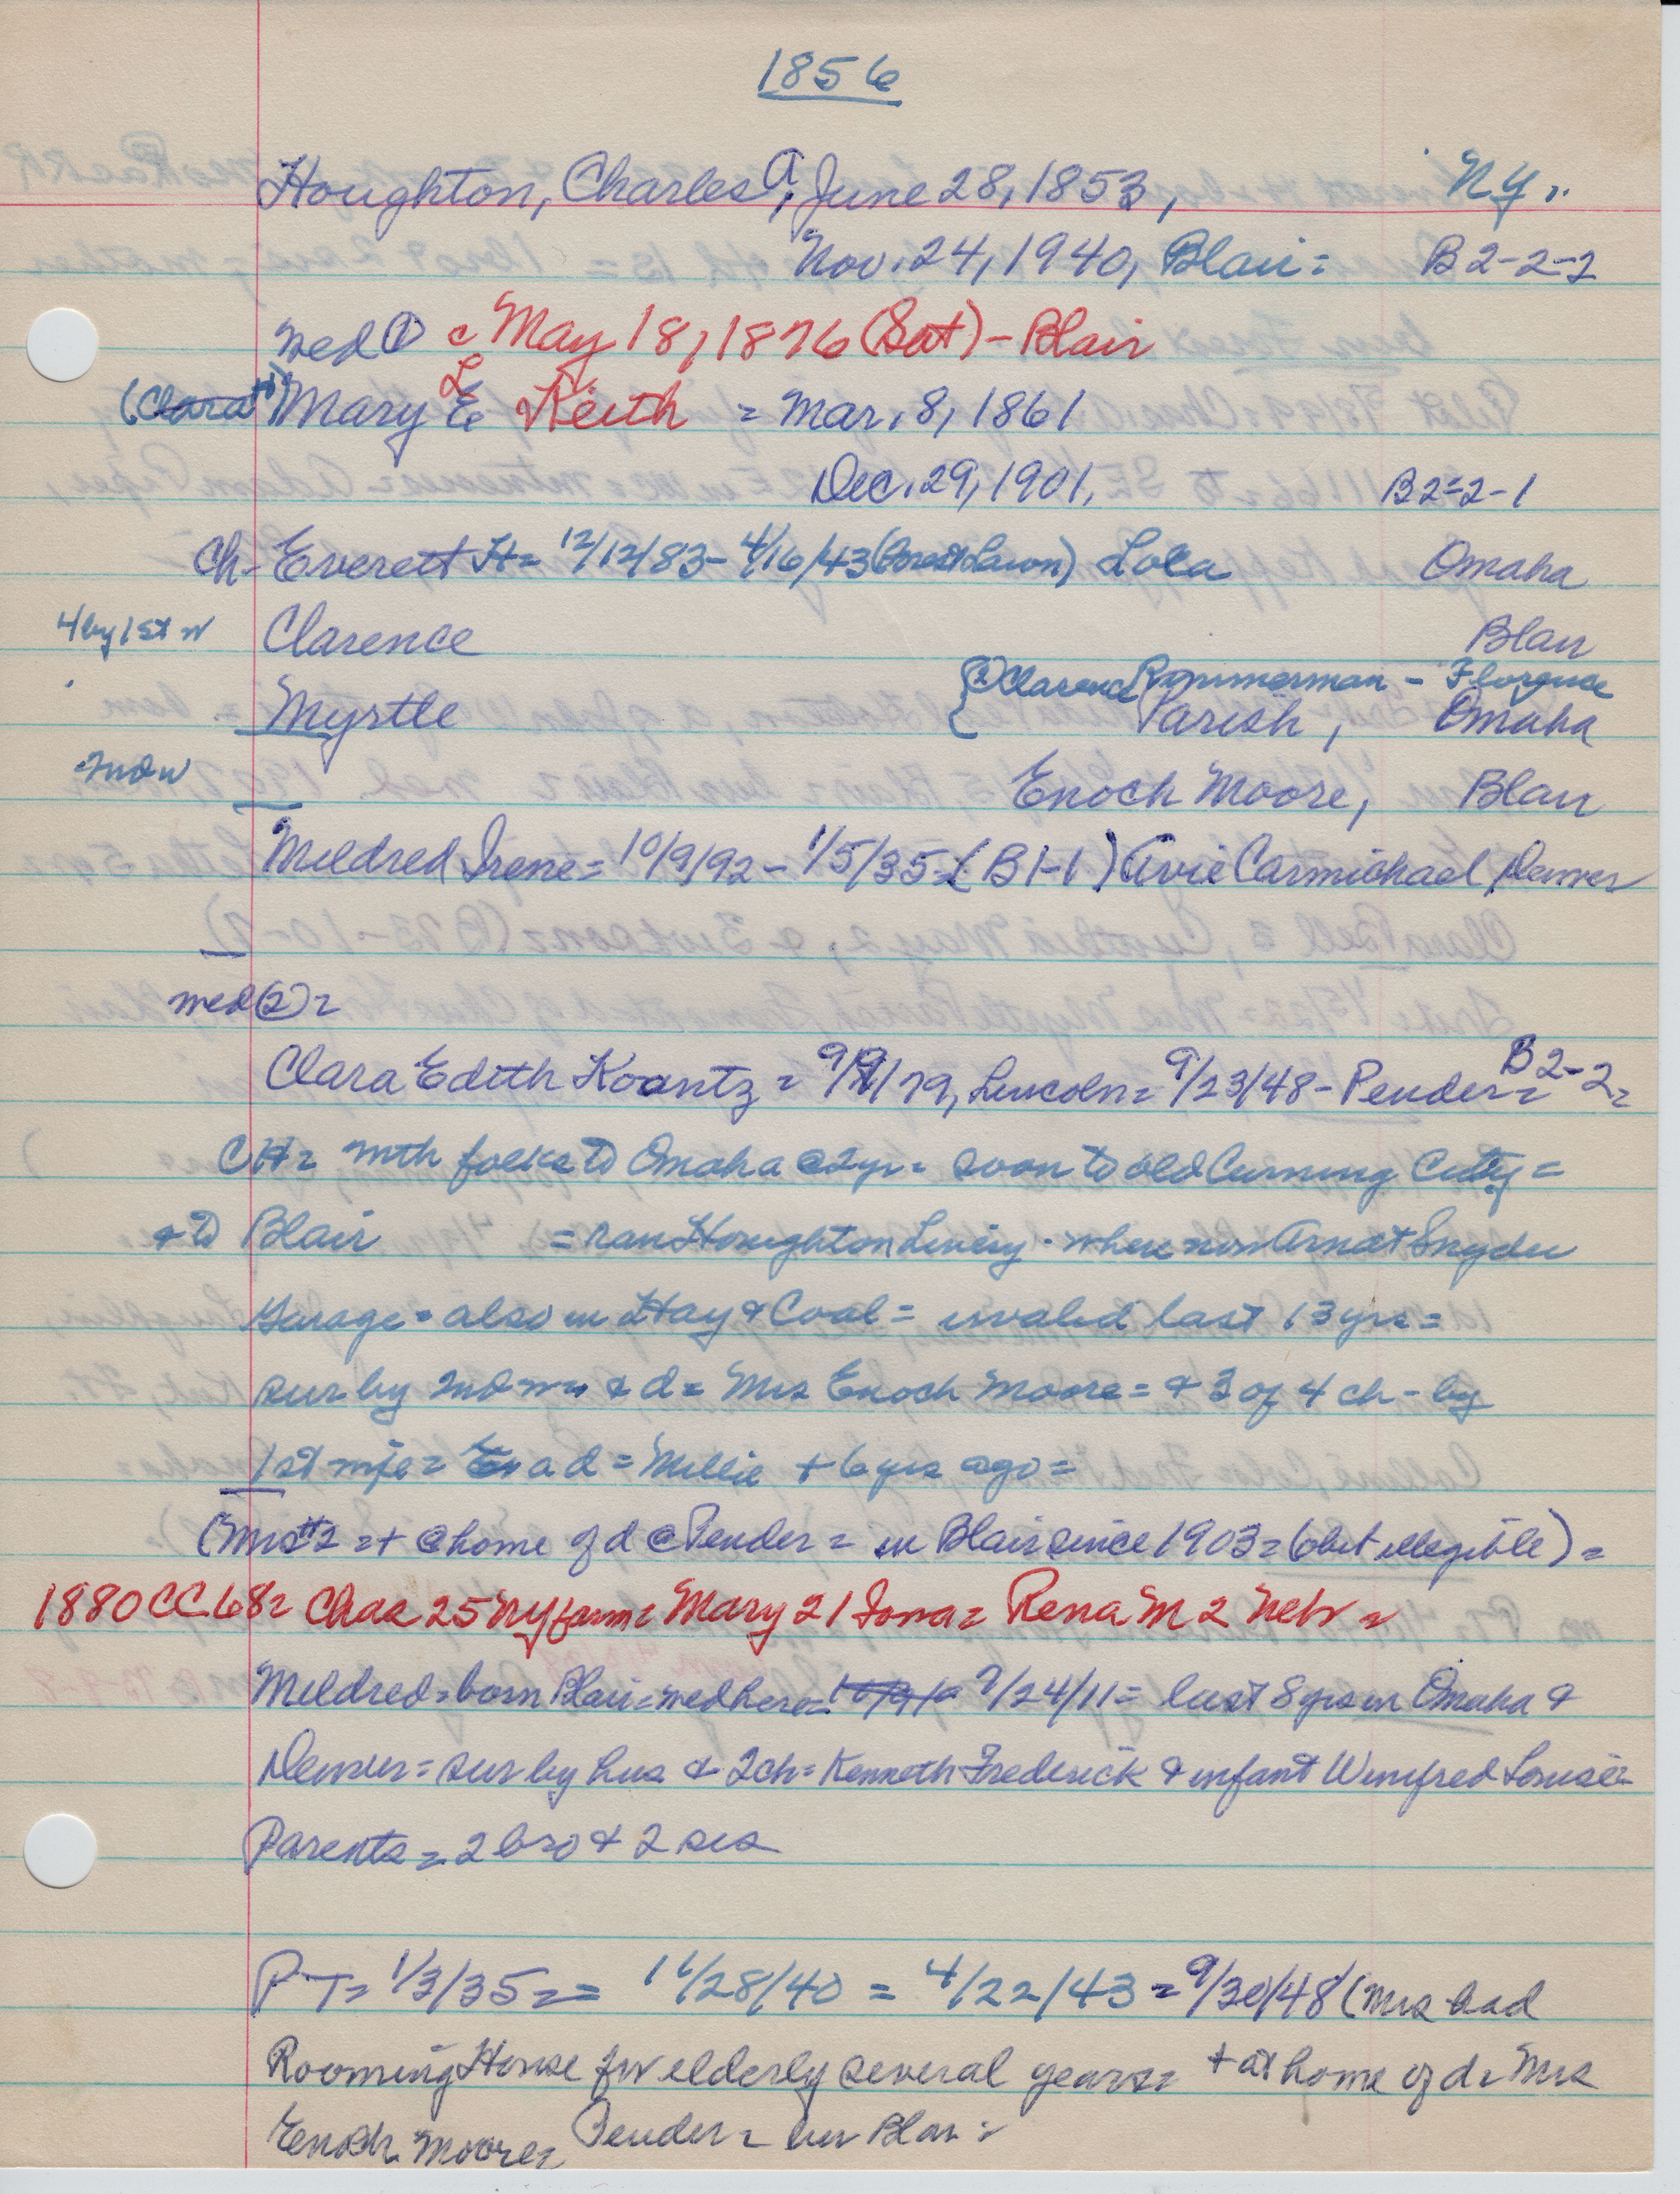 1856
Houghton, Charles A, June 28, 1853, NY.
Nov. 24, 1940, Blair = B2-2-2
med ① c May 18, 1876 (Sat) - Blair
(Clara H) Mary E L Keith = Mar. 8, 1861
Dec. 29, 1901, B2-2-1
Ch- Everett H = 12/12/83 - 4/16/43 (Forest Lawn) Lola Omaha
4 by 1st w Clarence Blair
② Clarence Rommerman - Florence
Myrtle Parish, Omaha
2nd w Enoch Moore, Blair
Mildred Irene = 10/9/92 - 1/5/35 = (B1-1) Avie Carmichael Denver
med (2) =
Clara Edith Koontz = 9/9/79, Lincoln = 9/23/48 - Pender = B2-2 =
CH = with folks to Omaha @ 2yr = soon to old Cuming City =
& to Blair = ran Houghton Livery - where now Arndt Snyder
Garage = also in Hay & Coal = invalid last 13 yrs =
sur by 2nd w & d = Mrs Enoch Moore = & 3 of 4 ch - by
1st wife = a d = Millie + 6 yrs ago =
(Mrs #2 = + @ home of d @ Pender = in Blair since 1903 = (obit illegible) =
1880 CC 68 = Chas 25 NY farm = Mary 21 Iowa = Rena M 2 Neb =
Mildred = born Blair = med here = 9/24/11 = last 8 yrs in Omaha &
Denver = sur by hus & 2 ch = Kenneth Frederick & infant Winifred Louise =
Parents = 2 bro & 2 sis
PT = 1/3/35 = = 11/28/40 = 4/22/43 = 9/30/48 (Mrs had
Rooming House for elderly several years = + at home of d = Mrs
Enoch Moore = Pender = bur Blair =